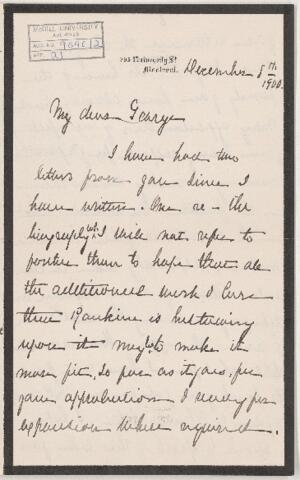 McGILL UNIVERSITY
ARCHIVES
ACC. NO.
REF.
University St
Montreal.
December 8th
1900.
My dear George
I have had two
letters from you since I
have written. One re - the
I will not refer to
further than to hope that all
the additional work & care
that Rankine is bestowing
upon it may to make it
more fit, so far as it goes, for
your approbation I
when required.